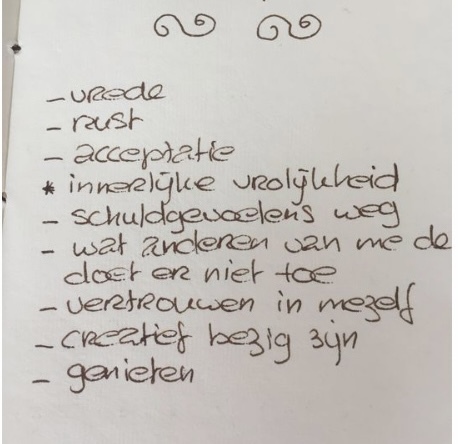 - vrede
- rust
- acceptatie
* innerlijke vrolijkheid
- schuldgevoelens weg
- wat anderen van me de
doet er niet toe
- vertrouwen in mezelf
- creatief bezig zijn
- genieten